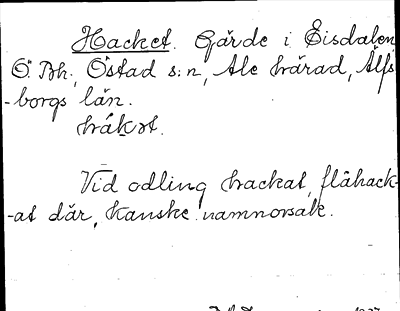 Hacket. Gärde i Eisdalen,
Ö. Bh., Östad s:n, Ale härad, Älfs
-borgs län.
håkət.
Vid odling hackat, flåhack-
-at där, kanske namnorsak.